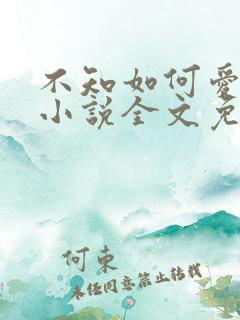 不知如何爱
小说全文免
何東
未经同意禁止转载